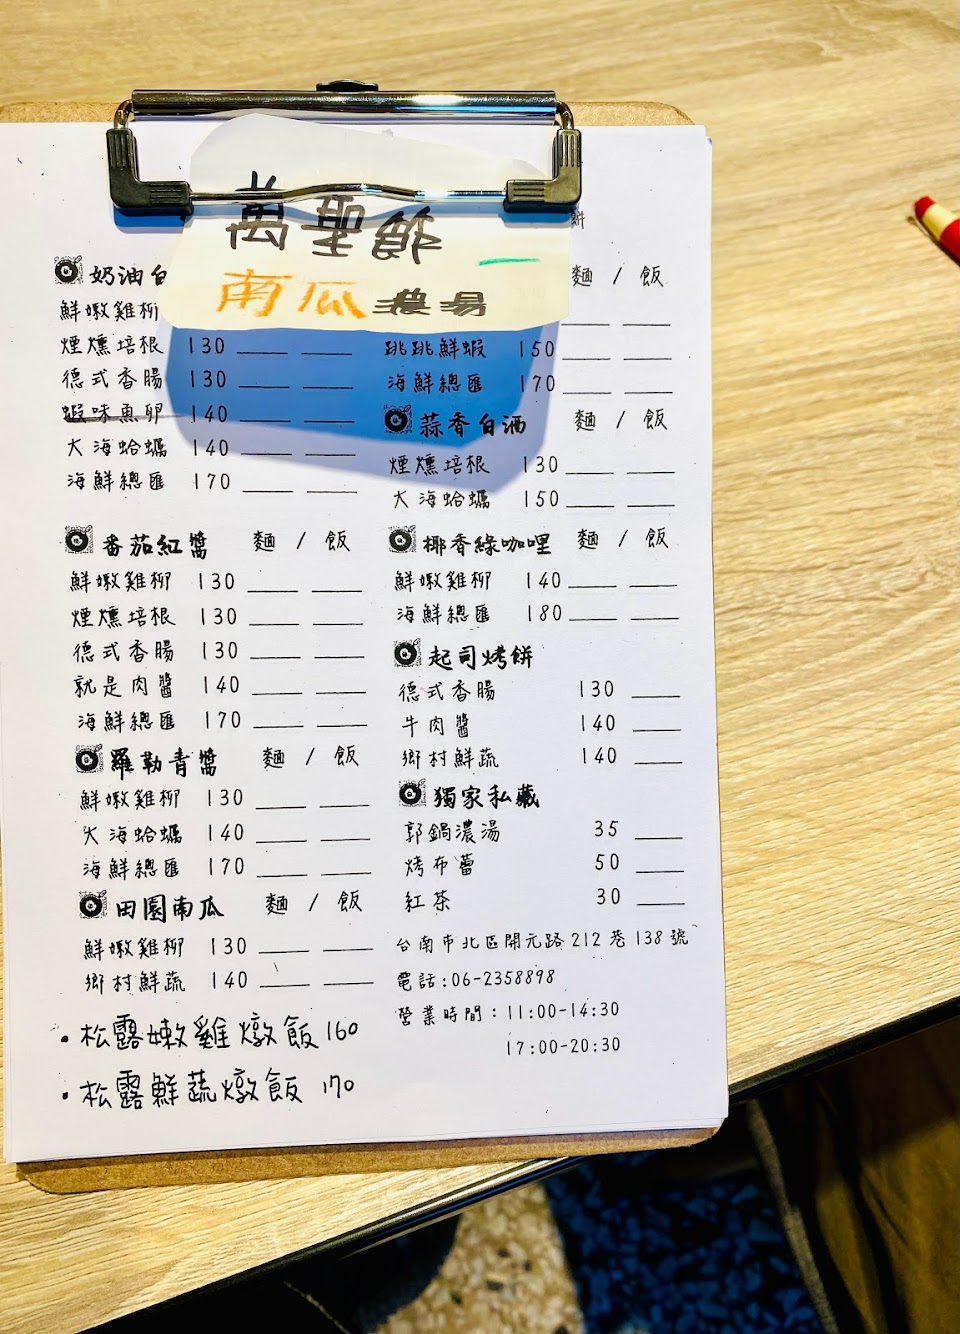 萬聖節
南瓜濃湯
奶油白
鮮嫩雞柳
煙燻培根 130
德式香腸 130
蝦味魚卵 140
大海蛤蠣 140
海鮮總匯 170
番茄紅醬 麵 / 飯
鮮嫩雞柳 130
煙燻培根 130
德式香腸 130
就是肉醬 140
海鮮總匯 170
羅勒青醬 麵 / 飯
鮮嫩雞柳 130
大海蛤蠣 140
海鮮總匯 170
田園南瓜 麵 / 飯
鮮嫩雞柳 130
鄉村鮮蔬 140
·松露嫩雞燉飯 160
·松露鮮蔬燉飯 170
麵 / 飯
跳跳鮮蝦 150
海鮮總匯 170
蒜香白酒 麵 / 飯
煙燻培根 130
大海蛤蠣 150
椰香綠咖哩 麵 / 飯
鮮嫩雞柳 140
海鮮總匯 180
起司烤餅
德式香腸 130
牛肉醬 140
鄉村鮮蔬 140
獨家私藏
郭鍋濃湯 35
烤布蕾 50
紅茶 30
台南市北區開元路212巷138號
電話:06-2358898
營業時間：11:00-14:30
17:00-20:30